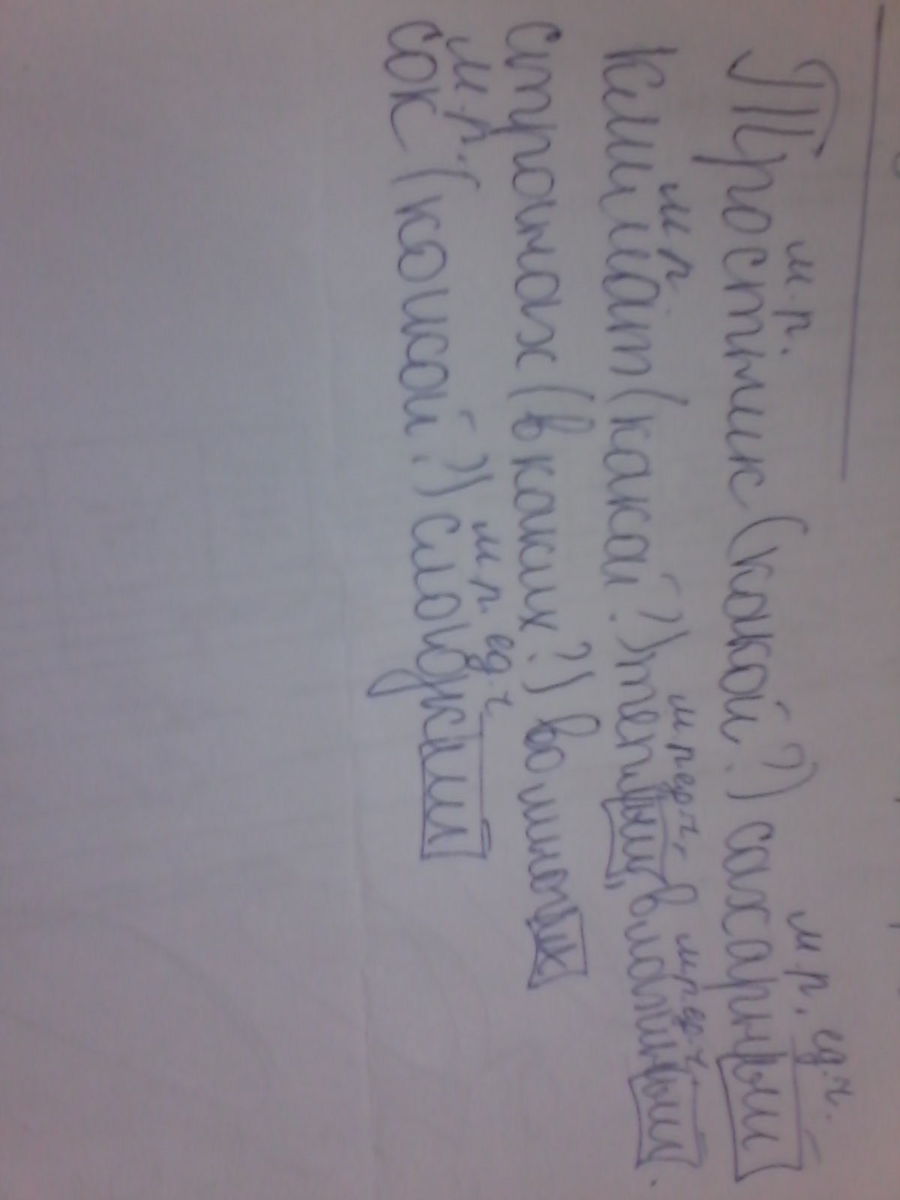 м.р. м.р. ед.ч.
Тростник (какой?) сахарный
м.р. м.р. ед.ч. м.р. ед.ч.
Климат (какой?) теплый, влажный.
странах (в каких?) во многих
м.р. м.р. ед.ч.
сок (какой?) сладкий